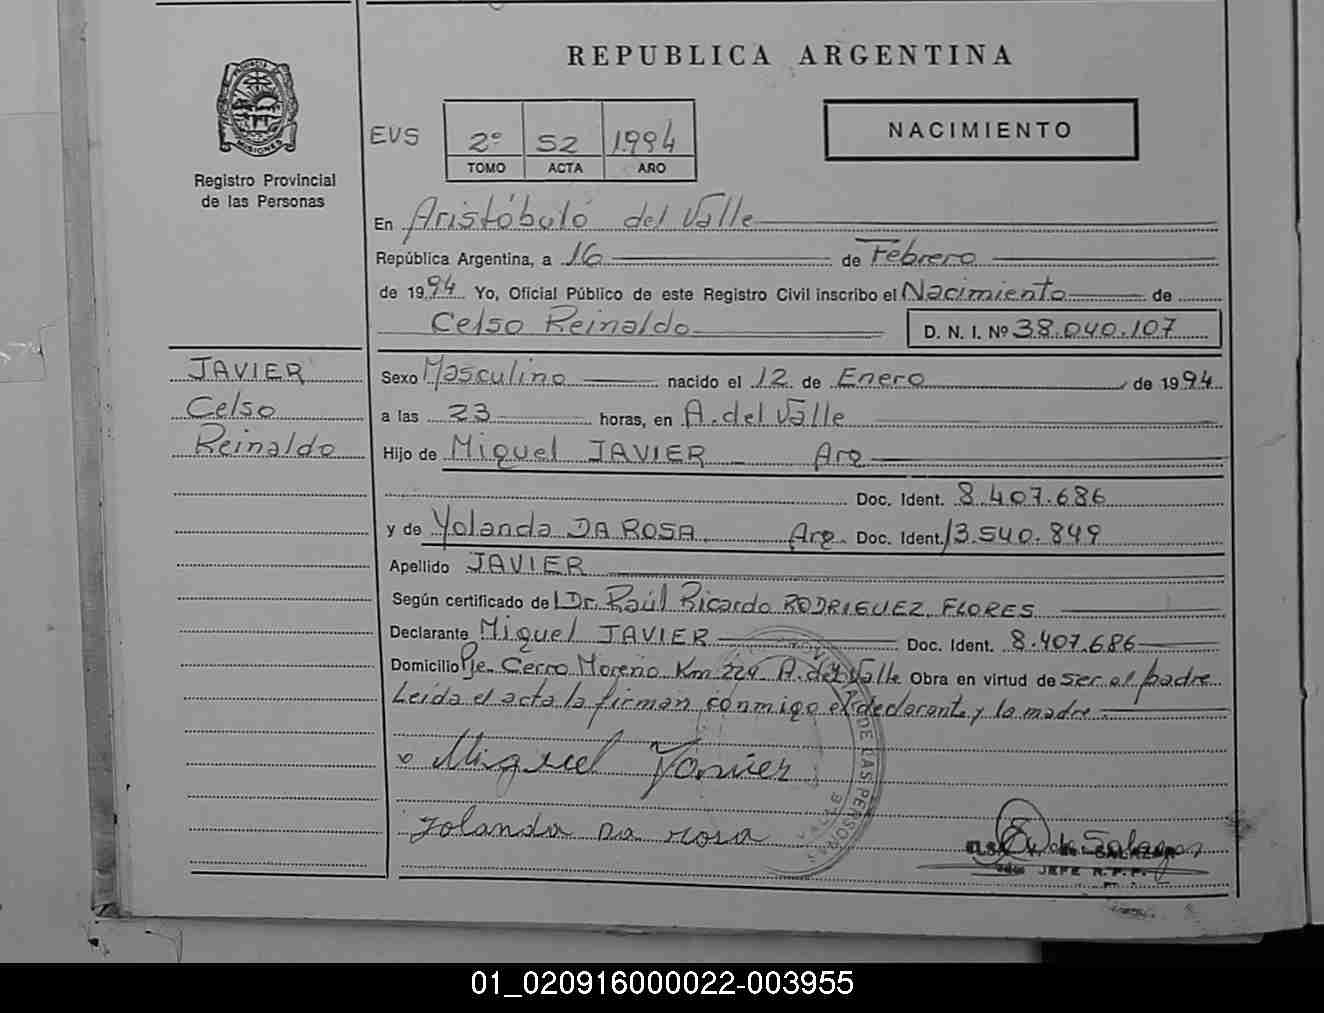 REPUBLICA ARGENTINA
PROVINCIA DE
MISIONES
Registro Provincial
de las Personas
EVS
2º 52 1994
TOMO ACTA AÑO
NACIMIENTO
En Aristóbulo del Valle
República Argentina, a 16 de Febrero
de 1994 Yo, Oficial Público de este Registro Civil inscribo el Nacimiento de
Celso Reinaldo D. N. I. Nº 38.040.107
JAVIER
Celso
Reinaldo
Sexo Masculino nacido el 12 de Enero de 1994
a las 23 horas, en A. del Valle
Hijo de Miguel JAVIER Arg
Doc. Ident. 8.407.686
y de Yolanda DA ROSA Arg. Doc. Ident. 13.540.849
Apellido JAVIER
Según certificado de Dr. Raúl Ricardo RODRIGUEZ FLORES
Declarante Miguel JAVIER Doc. Ident. 8.407.686
Domicilio Pje. Cerro Moreno Km 224 A. del Valle Obra en virtud de ser el padre
Leída el acta la firman conmigo el declarante y la madre
Miguel Javier
Yolanda Da rosa
DE LAS PERSONAS
ELSA V. de SALAZAR
JEFE R.P.P.
01_020916000022-003955